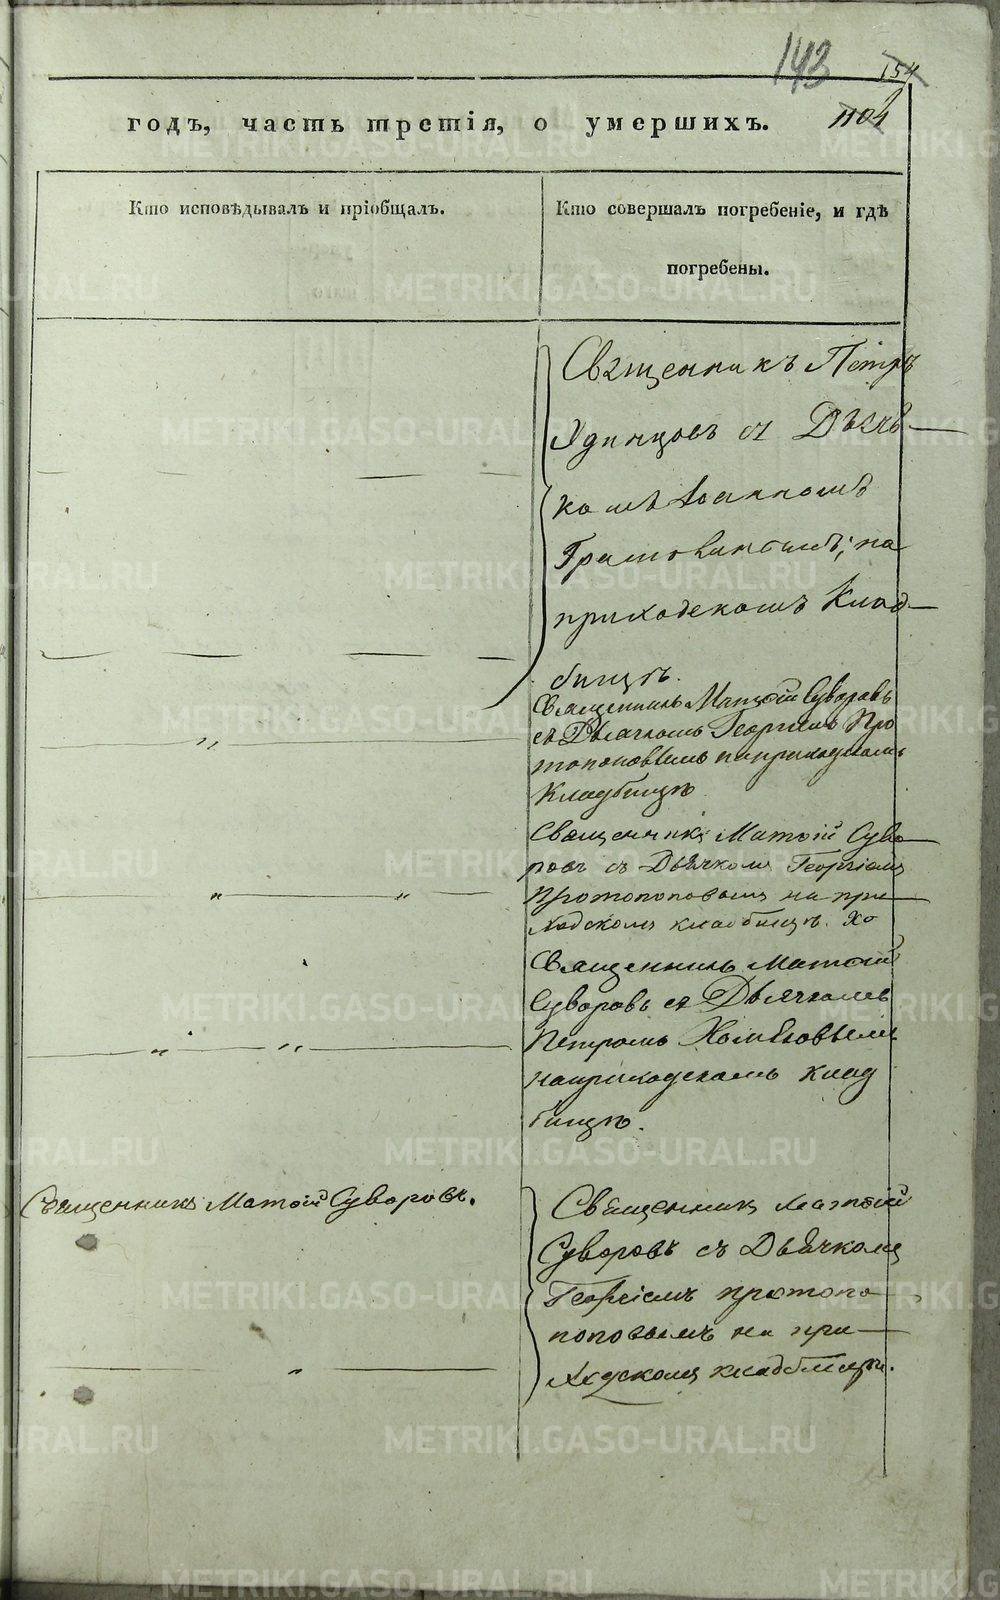 143
154
1104
годъ, часть третія, о умершихъ.
Кто исповѣдывалъ и пріобщалъ.
Кто совершалъ погребеніе, и гдѣ
погребены.
Священникъ Петръ
Удинцовъ съ Дьяч-
комъ Іоанномъ
на
приходскомъ Клад-
бищѣ.
Священникъ Матѳій Суворовъ
съ Дьячкомъ Георгіемъ Про
топоповымъ на приходскомъ
Кладбищѣ
Священникъ Матѳій Суво-
ровъ съ Дьячкомъ Георгіемъ
Протопоповымъ на при-
ходскомъ кладбищѣ.
Священникъ Матѳій
Суворовъ съ Дьячкомъ
Петромъ
на приходскомъ клад
бищѣ.
Священникъ Матѳій Суворовъ.
Священникъ Матѳій
Суворовъ съ Дьячкомъ
Георгіемъ протопо-
поповымъ на при-
ходскомъ кладбищѣ.
METRIKI.GASO-URAL.RU